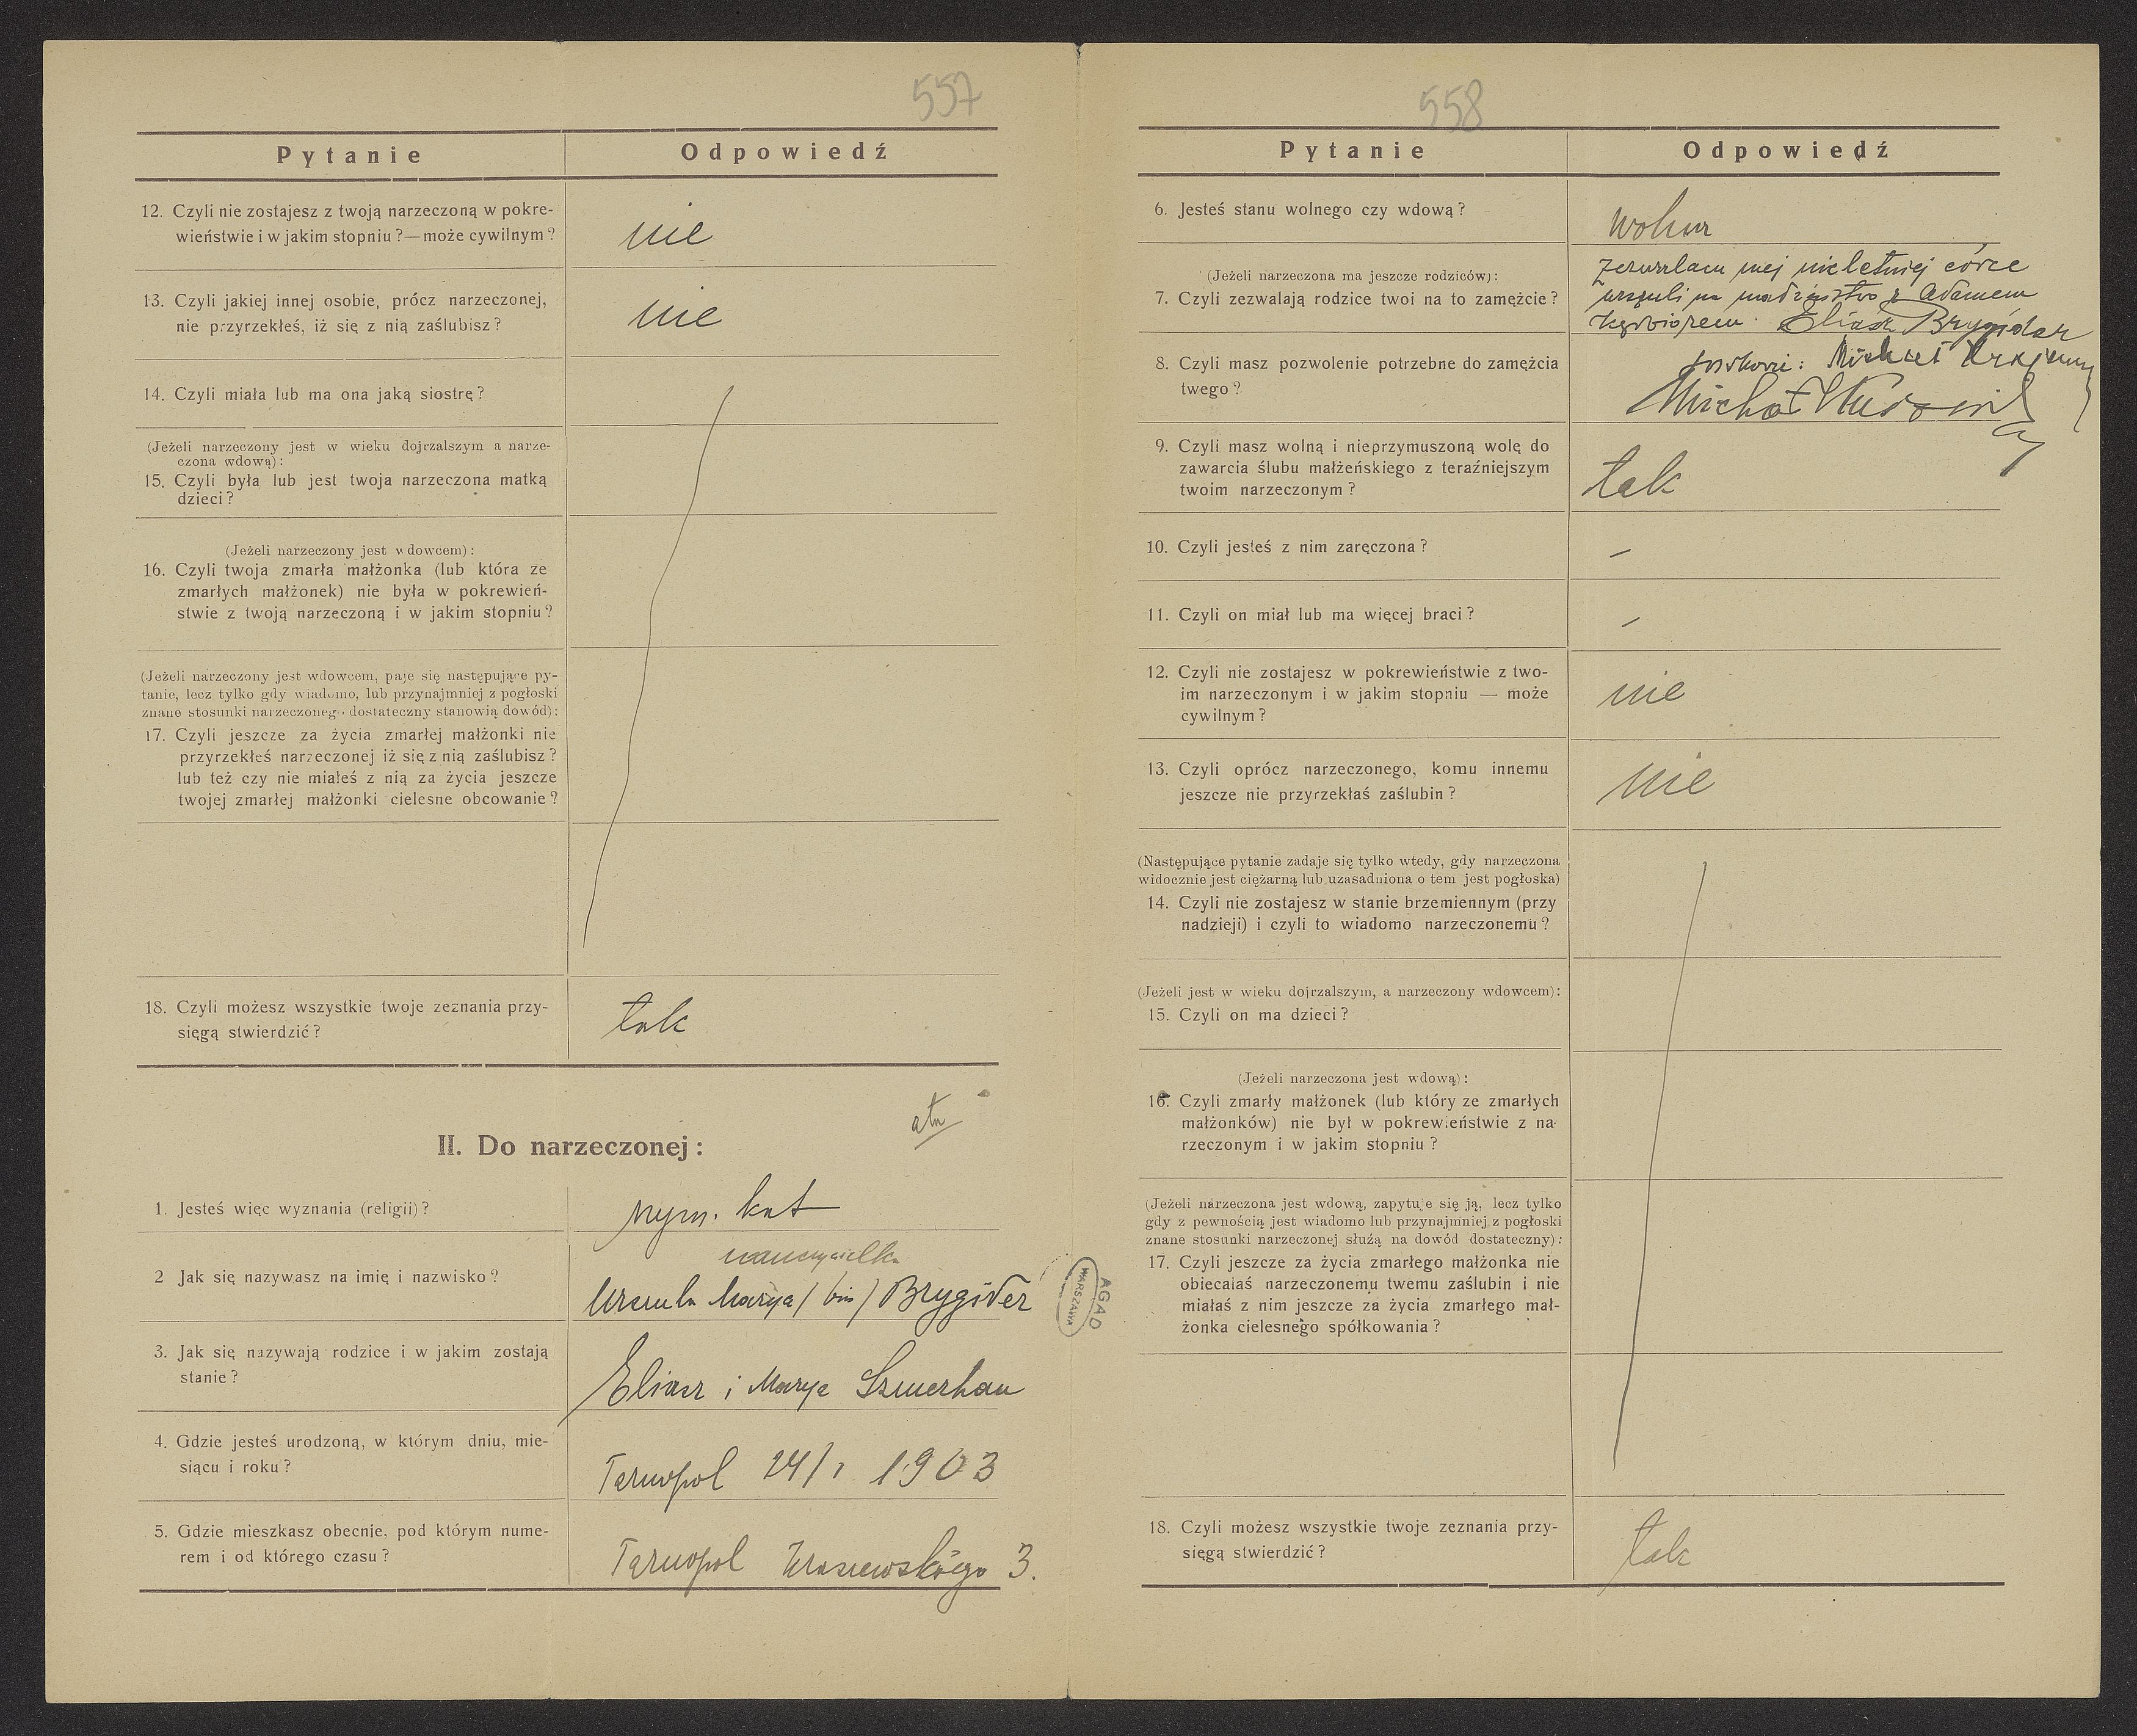 557
Pytanie Odpowiedź
12. Czyli nie zostajesz z twoją narzeczoną w pokre-
wieństwie i w jakim stopniu?—może cywilnym?
nie
13. Czyli jakiej innej osobie, prócz narzeczonej,
nie przyrzekłeś, iż się z nią zaślubisz?
nie
14. Czyli miała lub ma ona jaką siostrę?
(Jeżeli narzeczony jest w wieku dojrzalszym a narze-
czona wdową):
15. Czyli była lub jest twoja narzeczona matką
dzieci?
(Jeżeli narzeczony jest wdowcem):
16. Czyli twoja zmarła małżonka (lub która ze
zmarłych małżonek) nie była w pokrewień-
stwie z twoją narzeczoną i w jakim stopniu?
(Jeżeli narzeczony jest wdowcem, paje się następujące py-
tanie, lecz tylko gdy wiadomo, lub przynajmniej z pogłoski
znane stosunki narzeczonego dostateczny stanowią dowód):
17. Czyli jeszcze za życia zmarłej małżonki nie
przyrzekłeś narzeczonej iż się z nią zaślubisz?
lub też czy nie miałeś z nią za życia jeszcze
twojej zmarłej małżonki cielesne obcowanie?
18. Czyli możesz wszystkie twoje zeznania przy-
sięgą stwierdzić?
tak
II. Do narzeczonej:
1. Jesteś więc wyznania (religii)?
rzym. kat
nauczycielka
2 Jak się nazywasz na imię i nazwisko?
Urszula Marya / bin / Brygider
3. Jak się nazywają rodzice i w jakim zostają
stanie?
Eliasz i Marya Szmerhau
4. Gdzie jesteś urodzoną, w którym dniu, mie-
siącu i roku?
Tarnopol 24/1 1903
5. Gdzie mieszkasz obecnie, pod którym nume-
rem i od którego czasu?
Tarnopol Kraszewskiego 3.
AGAD
WARSZAWA
558
Pytanie Odpowiedź
6. Jesteś stanu wolnego czy wdową?
wolna
(Jeżeli narzeczona ma jeszcze rodziców):
7. Czyli zezwalają rodzice twoi na to zamęźcie?
Zezwalam mej nieletniej córce
Urszuli na małżeństwo z Adamem
Eliasz Brygider
8. Czyli masz pozwolenie potrzebne do zamężcia
twego?
Michał
Michał
9. Czyli masz wolną i nieprzymuszoną wolę do
zawarcia ślubu małżeńskiego z teraźniejszym
twoim narzeczonym?
tak
10. Czyli jesteś z nim zaręczona?
–
11. Czyli on miał lub ma więcej braci?
–
12. Czyli nie zostajesz w pokrewieństwie z two-
im narzeczonym i w jakim stopniu — może
cywilnym?
nie
13. Czyli oprócz narzeczonego, komu innemu
jeszcze nie przyrzekłaś zaślubin?
nie
(Następujące pytanie zadaje się tylko wtedy, gdy narzeczona
widocznie jest ciężarną lub uzasadniona o tem jest pogłoska)
14. Czyli nie zostajesz w stanie brzemiennym (przy
nadzieji) i czyli to wiadomo narzeczonemu?
(Jeżeli jest w wieku dojrzalszym, a narzeczony wdowcem):
15. Czyli on ma dzieci?
(Jeżeli narzeczona jest wdową):
16. Czyli zmarły małżonek (lub który ze zmarłych
małżonków) nie był w pokrewieństwie z na-
rzeczonym i w jakim stopniu?
(Jeżeli narzeczona jest wdową, zapytuje się ją, lecz tylko
gdy z pewnością jest wiadomo lub przynajmniej z pogłoski
znane stosunki narzeczonej służą na dowód dostateczny):
17. Czyli jeszcze za życia zmarłego małżonka nie
obiecałaś narzeczonemu twemu zaślubin i nie
miałaś z nim jeszcze za życia zmarłego mał-
żonka cielesnego spółkowania?
18. Czyli możesz wszystkie twoje zeznania przy-
sięgą stwierdzić?
tak